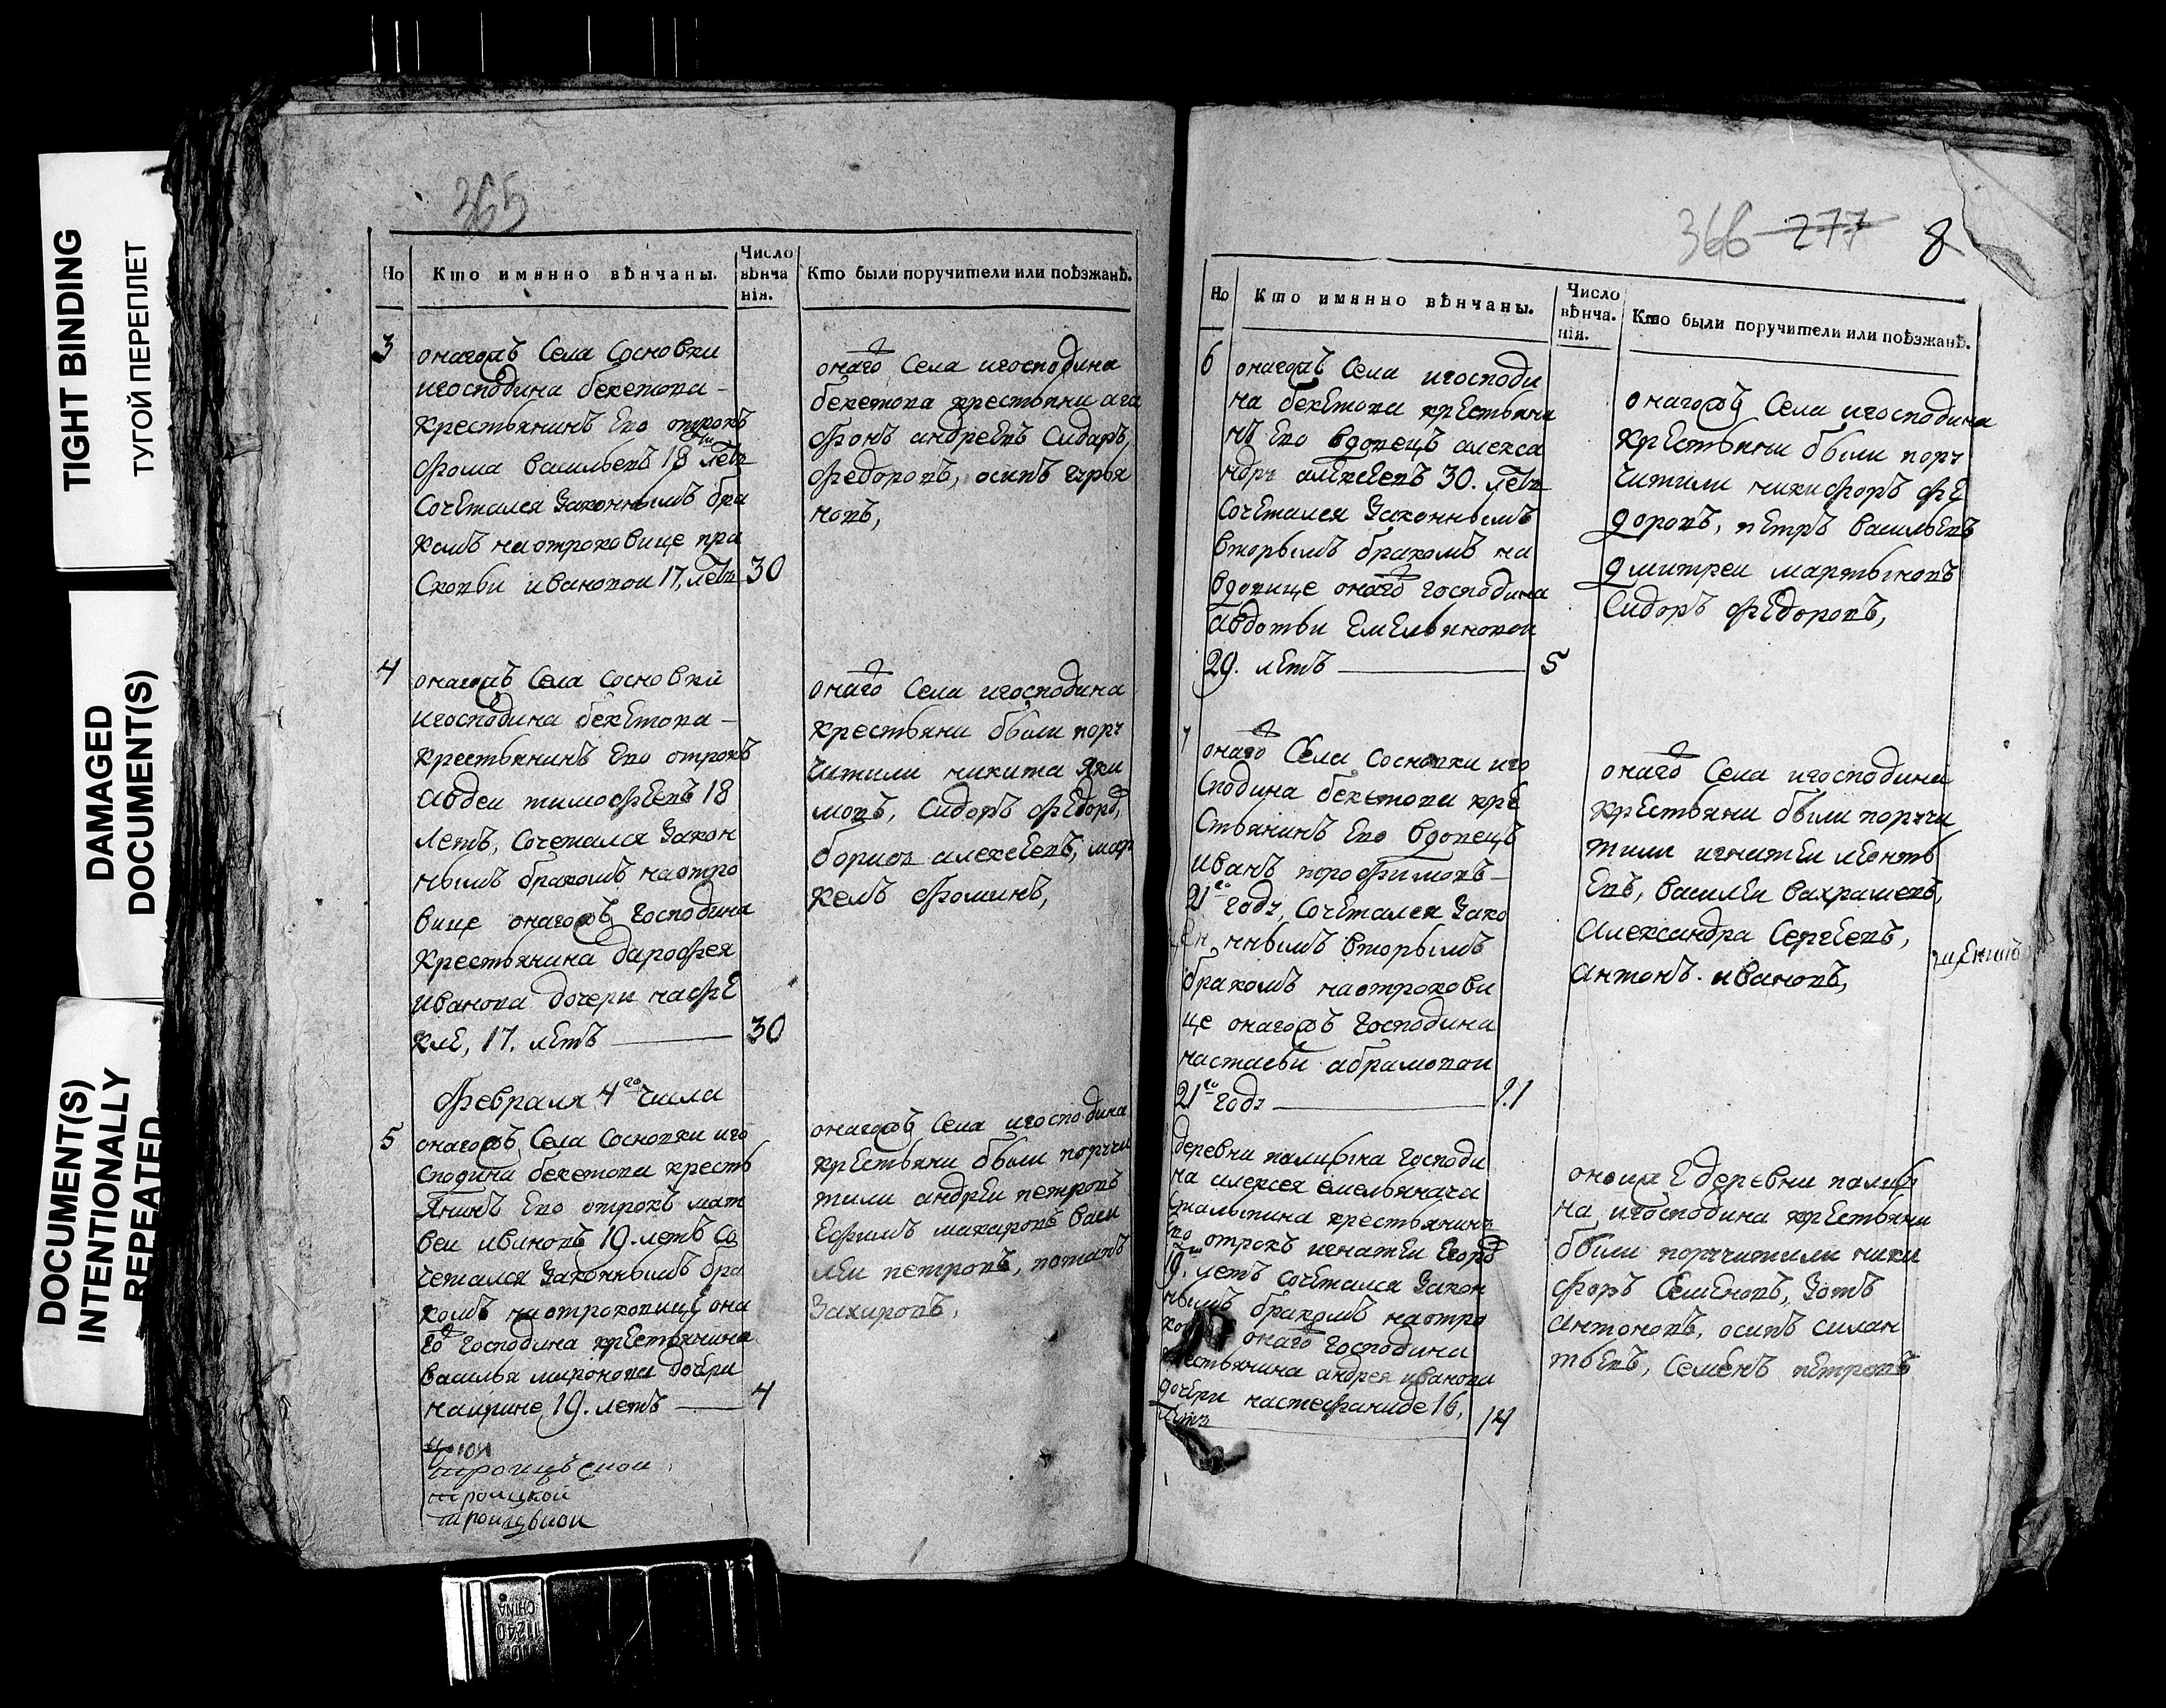 TIGHT BINDING
ТУГОЙ ПЕРЕПЛЕТ
DAMAGED
DOCUMENT(S)
DOCUMENT(S)
INTENTIONALLY
REPEATED
365
Но
Кто имянно вѣнчаны.
Число
вѣнча
нія.
Кто были поручители или поѣзжанѣ.
3
онагожъ Села Сосновки
игосподина бекетова
крестьянинъ Ево отрокъ
Фома васильевъ 18 ти летъ
Сочетался Законнымъ бра
комъ наотроковице пра
Сковьи ивановои 17, летъ 30
онаго Села игосподина
бекетова крестьяни ага
Фонъ андреевъ Сидаръ,
Федоровъ, осипъ гурья
новъ,
4
онагожъ Села Сосновки
игосподина бекетова
крестьянинъ Ево отрокъ
авдеи тимофеевъ 18
летъ, Сочетался Закон
нымъ бракомъ наотро
вице онагожъ Господина
Крестьянина дарофея
иванова дочери нафе
кле, 17. летъ 30
онаго Села игосподина
крестьяни были пору
чители никита яки
мовъ, Сидоръ Федоров,
борисъ алексеевъ, мар
келъ Фоминъ,
Февраля 4го числа
5
онагожъ Села Сосновки иго
Сподина бекетова кресть
янинъ Ево отрокъ мат
веи ивановъ 19. летъ Со
четался Законнымъ бра
комъ наотроковице она
го Господина крестьянина
василья миронова дочери
наирине 19. летъ 4
онагожъ Села игосподина
крестьяни были поручи
тили андреи петровъ
Ефимъ макаровъ васи
леи петровъ, потапъ
Захаровъ,
троицкой
366 277 8
Но
Кто имянно вѣнчаны.
Число
вѣнча.
нія.
Кто были поручители или поѣзжанѣ.
6
онагожъ Села игосподи
на бекетова крестьяни
нъ Ево вдовецъ алекса
ндръ алексеевъ 30. летъ
Сочетался Законнымъ
вторымъ бракомъ на
вдовице онаго господина
авдотьи Емельяновои
29. летъ 5
онагожъ Села игосподина
крестьяни были пору
чители никифоръ фе
доровъ, петръ васильевъ
дмитреи мартыновъ
Сидоръ федоровъ,
7
онаго Села Сосновки иго
Сподина бекетова кре
Стьянинъ Ево вдовецъ
иванъ трофимовъ
21го году, Сочетался Зако
ннымъ вторымъ
бракомъ наотрокови
це онагожъ Господина
настасьи абрамовои
21го году 11
онаго Села игосподина
крестьяни были поручи
тили игнатеи леонть
евъ, василеи вахрамеевъ,
Александра Сергеевъ,
антонъ ивановъ,
деревни налибина Господи
на алексея емельянача
Сталыпина крестьянинъ
Ево отрокъ игнатеи Егоров
19. летъ сочетался Закон
нымъ бракомъ наотро
онаго Господина
крестьянина андрея иванова
дочери настефаниде 16,
летъ 14
деревни налиби
на игосподина крестьяни
были поручители ники
форъ Семеновъ, Зотъ
антоновъ, осипъ силан
тьевъ, Семенъ петровъ